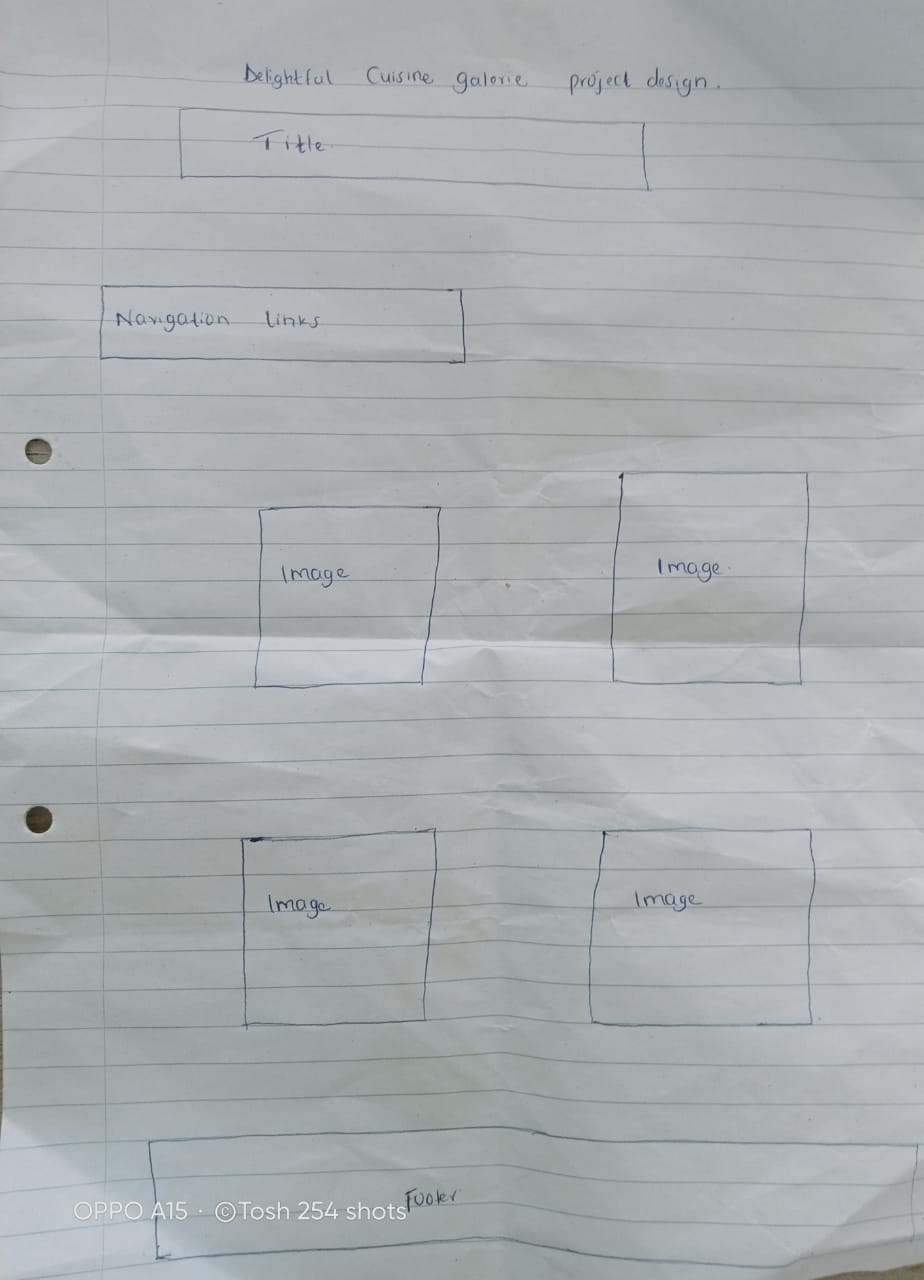 Delightful Cuisine galerie project design.
Title
Navigation links
Image
Image
Image
Image
Footer
OPPO A15 · ©Tosh 254 shots